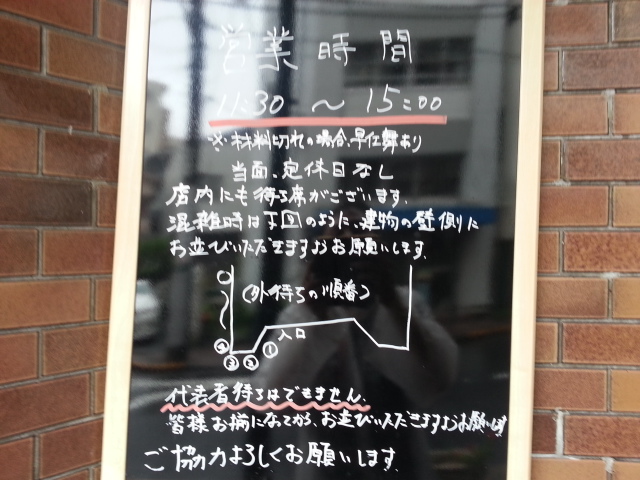 営業時間
11:30 ～ 15:00
※材料切れの場合、早仕舞あり
当面、定休日なし
店内にも待つ席がございます。
混雑時は下図のように、建物の壁側に
お並びいただきますようお願いします。
(外待ちの順番)
入口
④ ③ ② ①
代表者待ちはできません。
皆様お揃になってから、お並びいただきますようお願いします
ご協力よろしくお願いします。